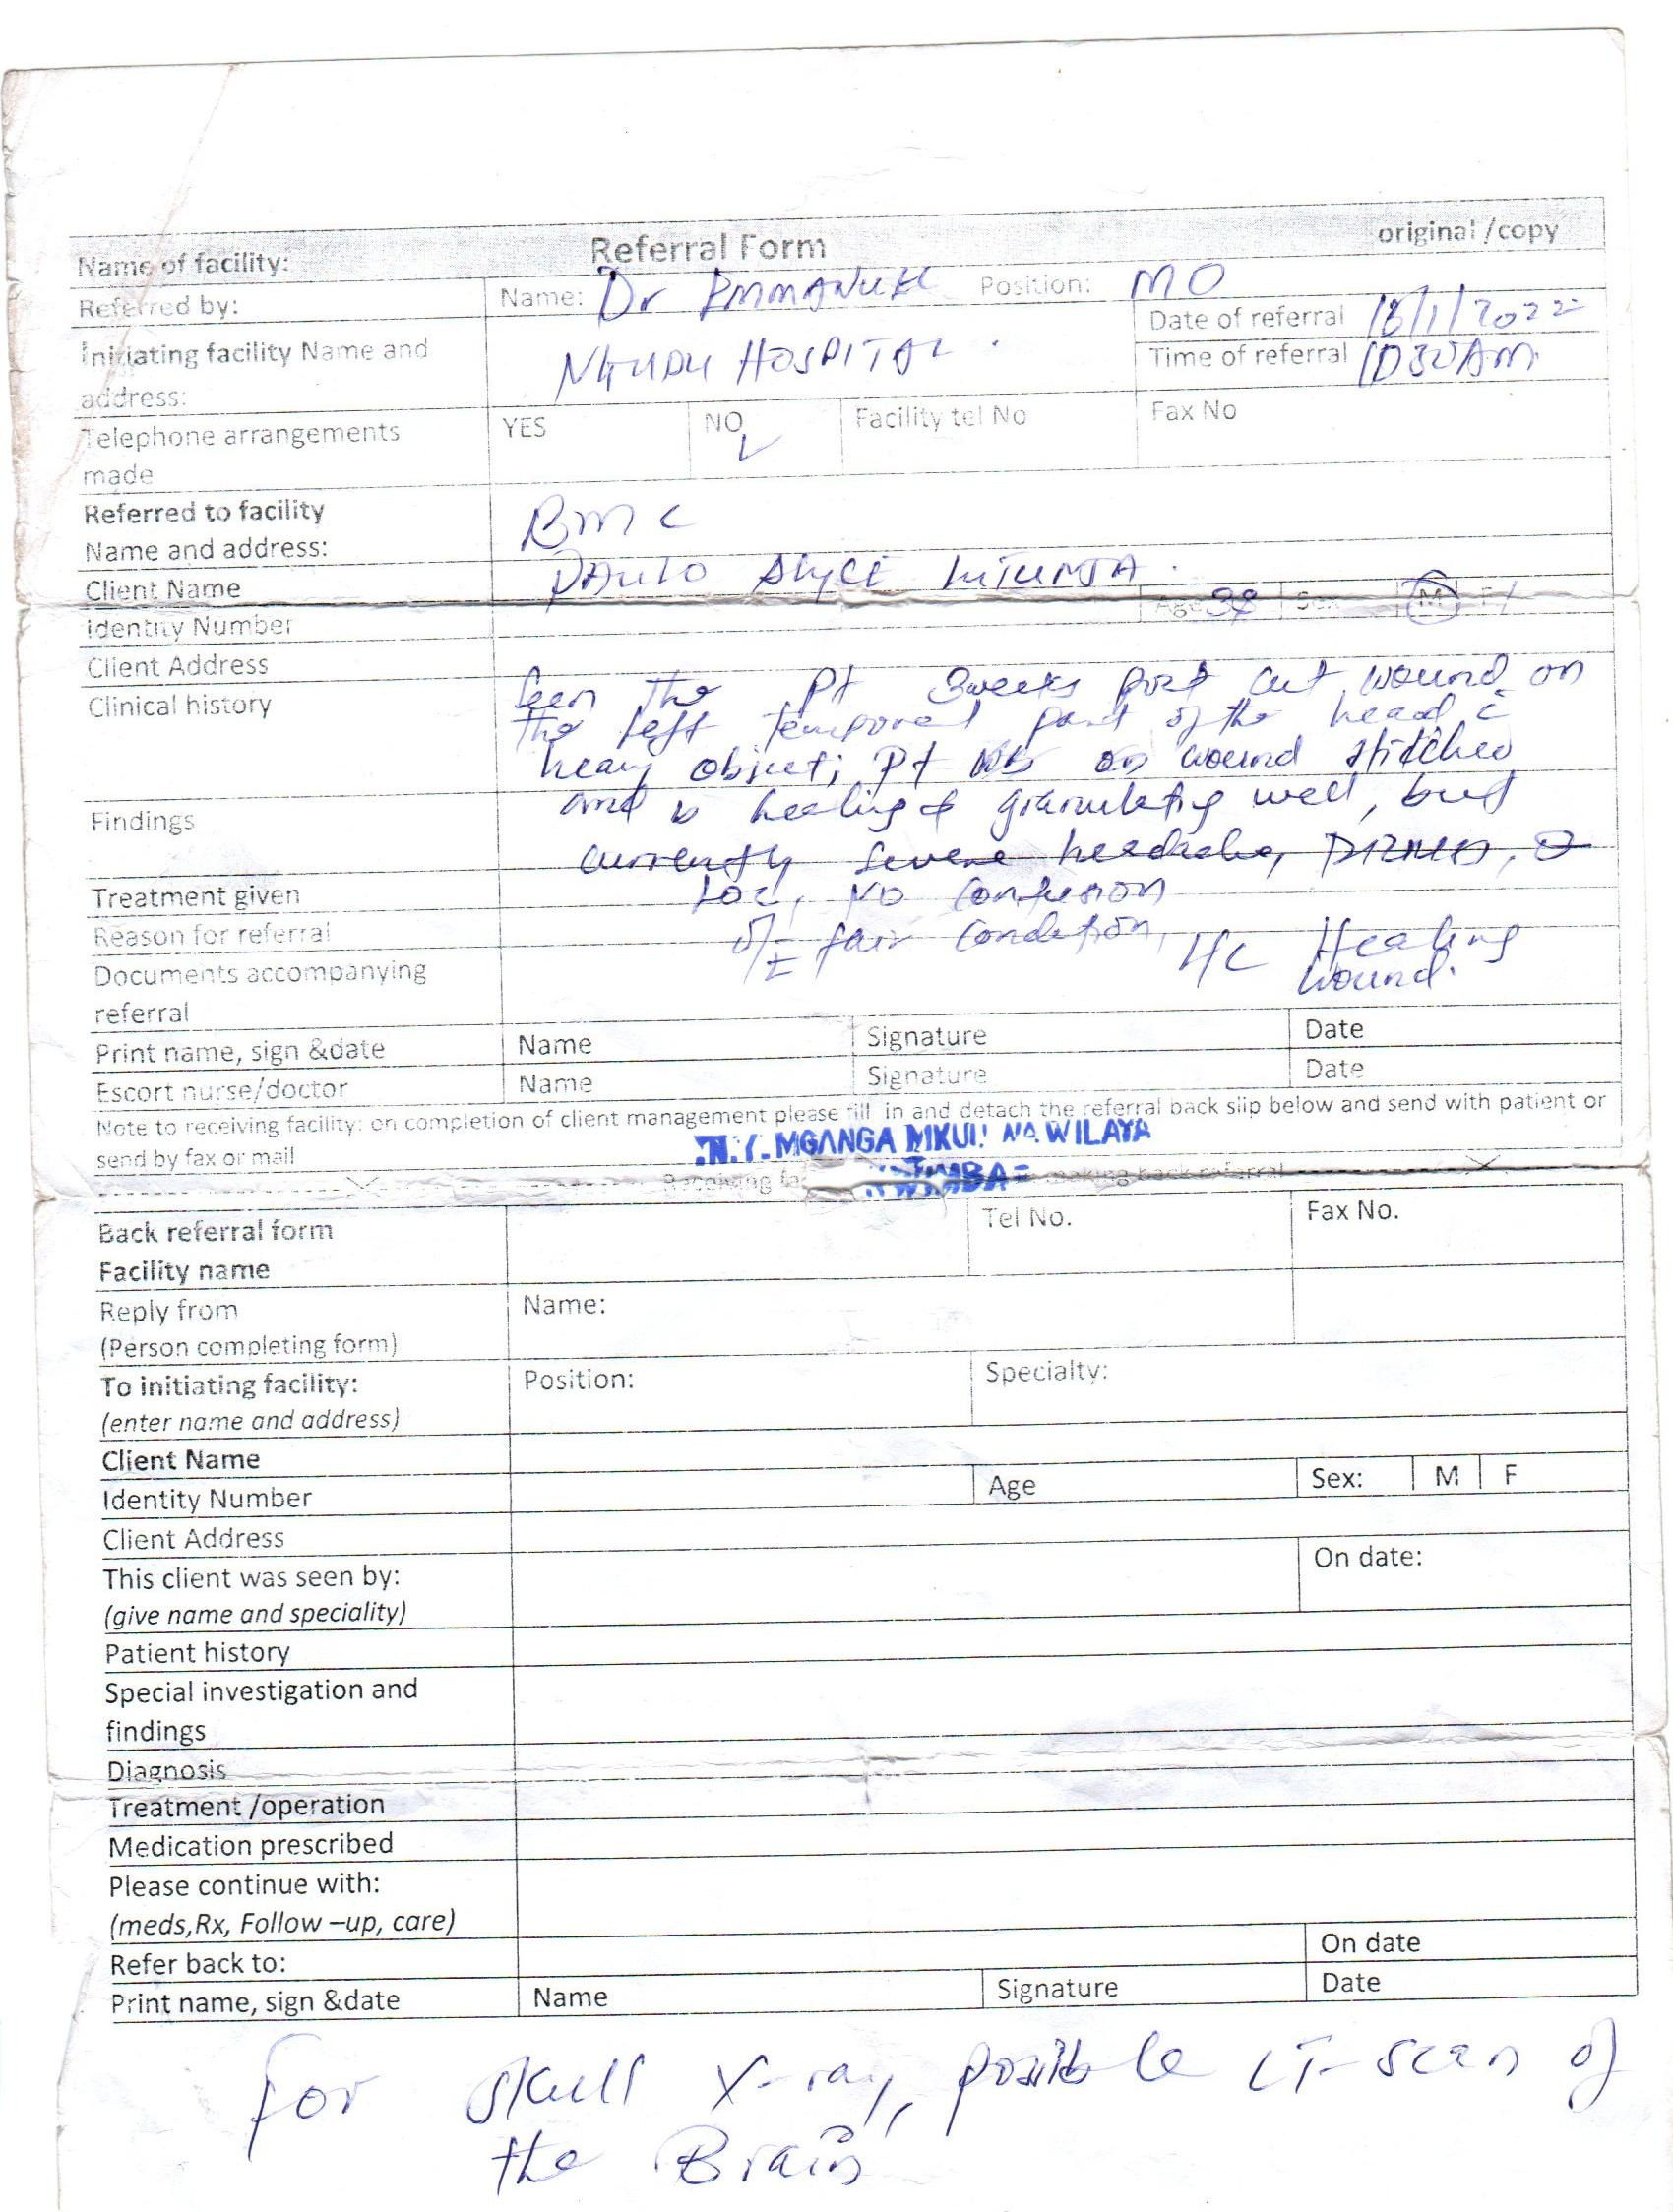 Referral Form
original /copy
Name of facility:
Referred by:
Name: Dr EMMANUEL Position: MO
Initiating facility Name and address:
HOSPITAL
Date of referral 18/1/2022
Time of referral 1030AM
Telephone arrangements made
YES
NO ✓
Facility tel No
Fax No
Referred to facility
Name and address:
BMC
Client Name
PAULO
Age 38 Sex M F
Identity Number
Client Address
Clinical history
Seen the Pt 3weeks post cut wound on
the left temporal part of the head c̄
heavy object; Pt on wound stitched
Findings
and is healing & granulating well, but
currently severe headache,
Treatment given
LOC, NO confusion
Reason for referral
O/E fair condition, Healing
Documents accompanying referral
wound.
Print name, sign &date
Name
Signature
Date
Escort nurse/doctor
Name
Signature
Date
Note to receiving facility: on completion of client management please fill in and detach the referral back slip below and send with patient or
send by fax or mail
MGANGA MKUU WA WILAYA
making back referral
Back referral form
Facility name
Tel No.
Fax No.
Reply from
(Person completing form)
Name:
To initiating facility:
(enter name and address)
Position:
Specialty:
Client Name
Identity Number
Age
Sex: M F
Client Address
This client was seen by:
(give name and speciality)
On date:
Patient history
Special investigation and
findings
Diagnosis
Treatment /operation
Medication prescribed
Please continue with:
(meds,Rx, Follow –up, care)
Refer back to:
On date
Print name, sign &date
Name
Signature
Date
For skull X-ray, possible CT-scan of
the Brain